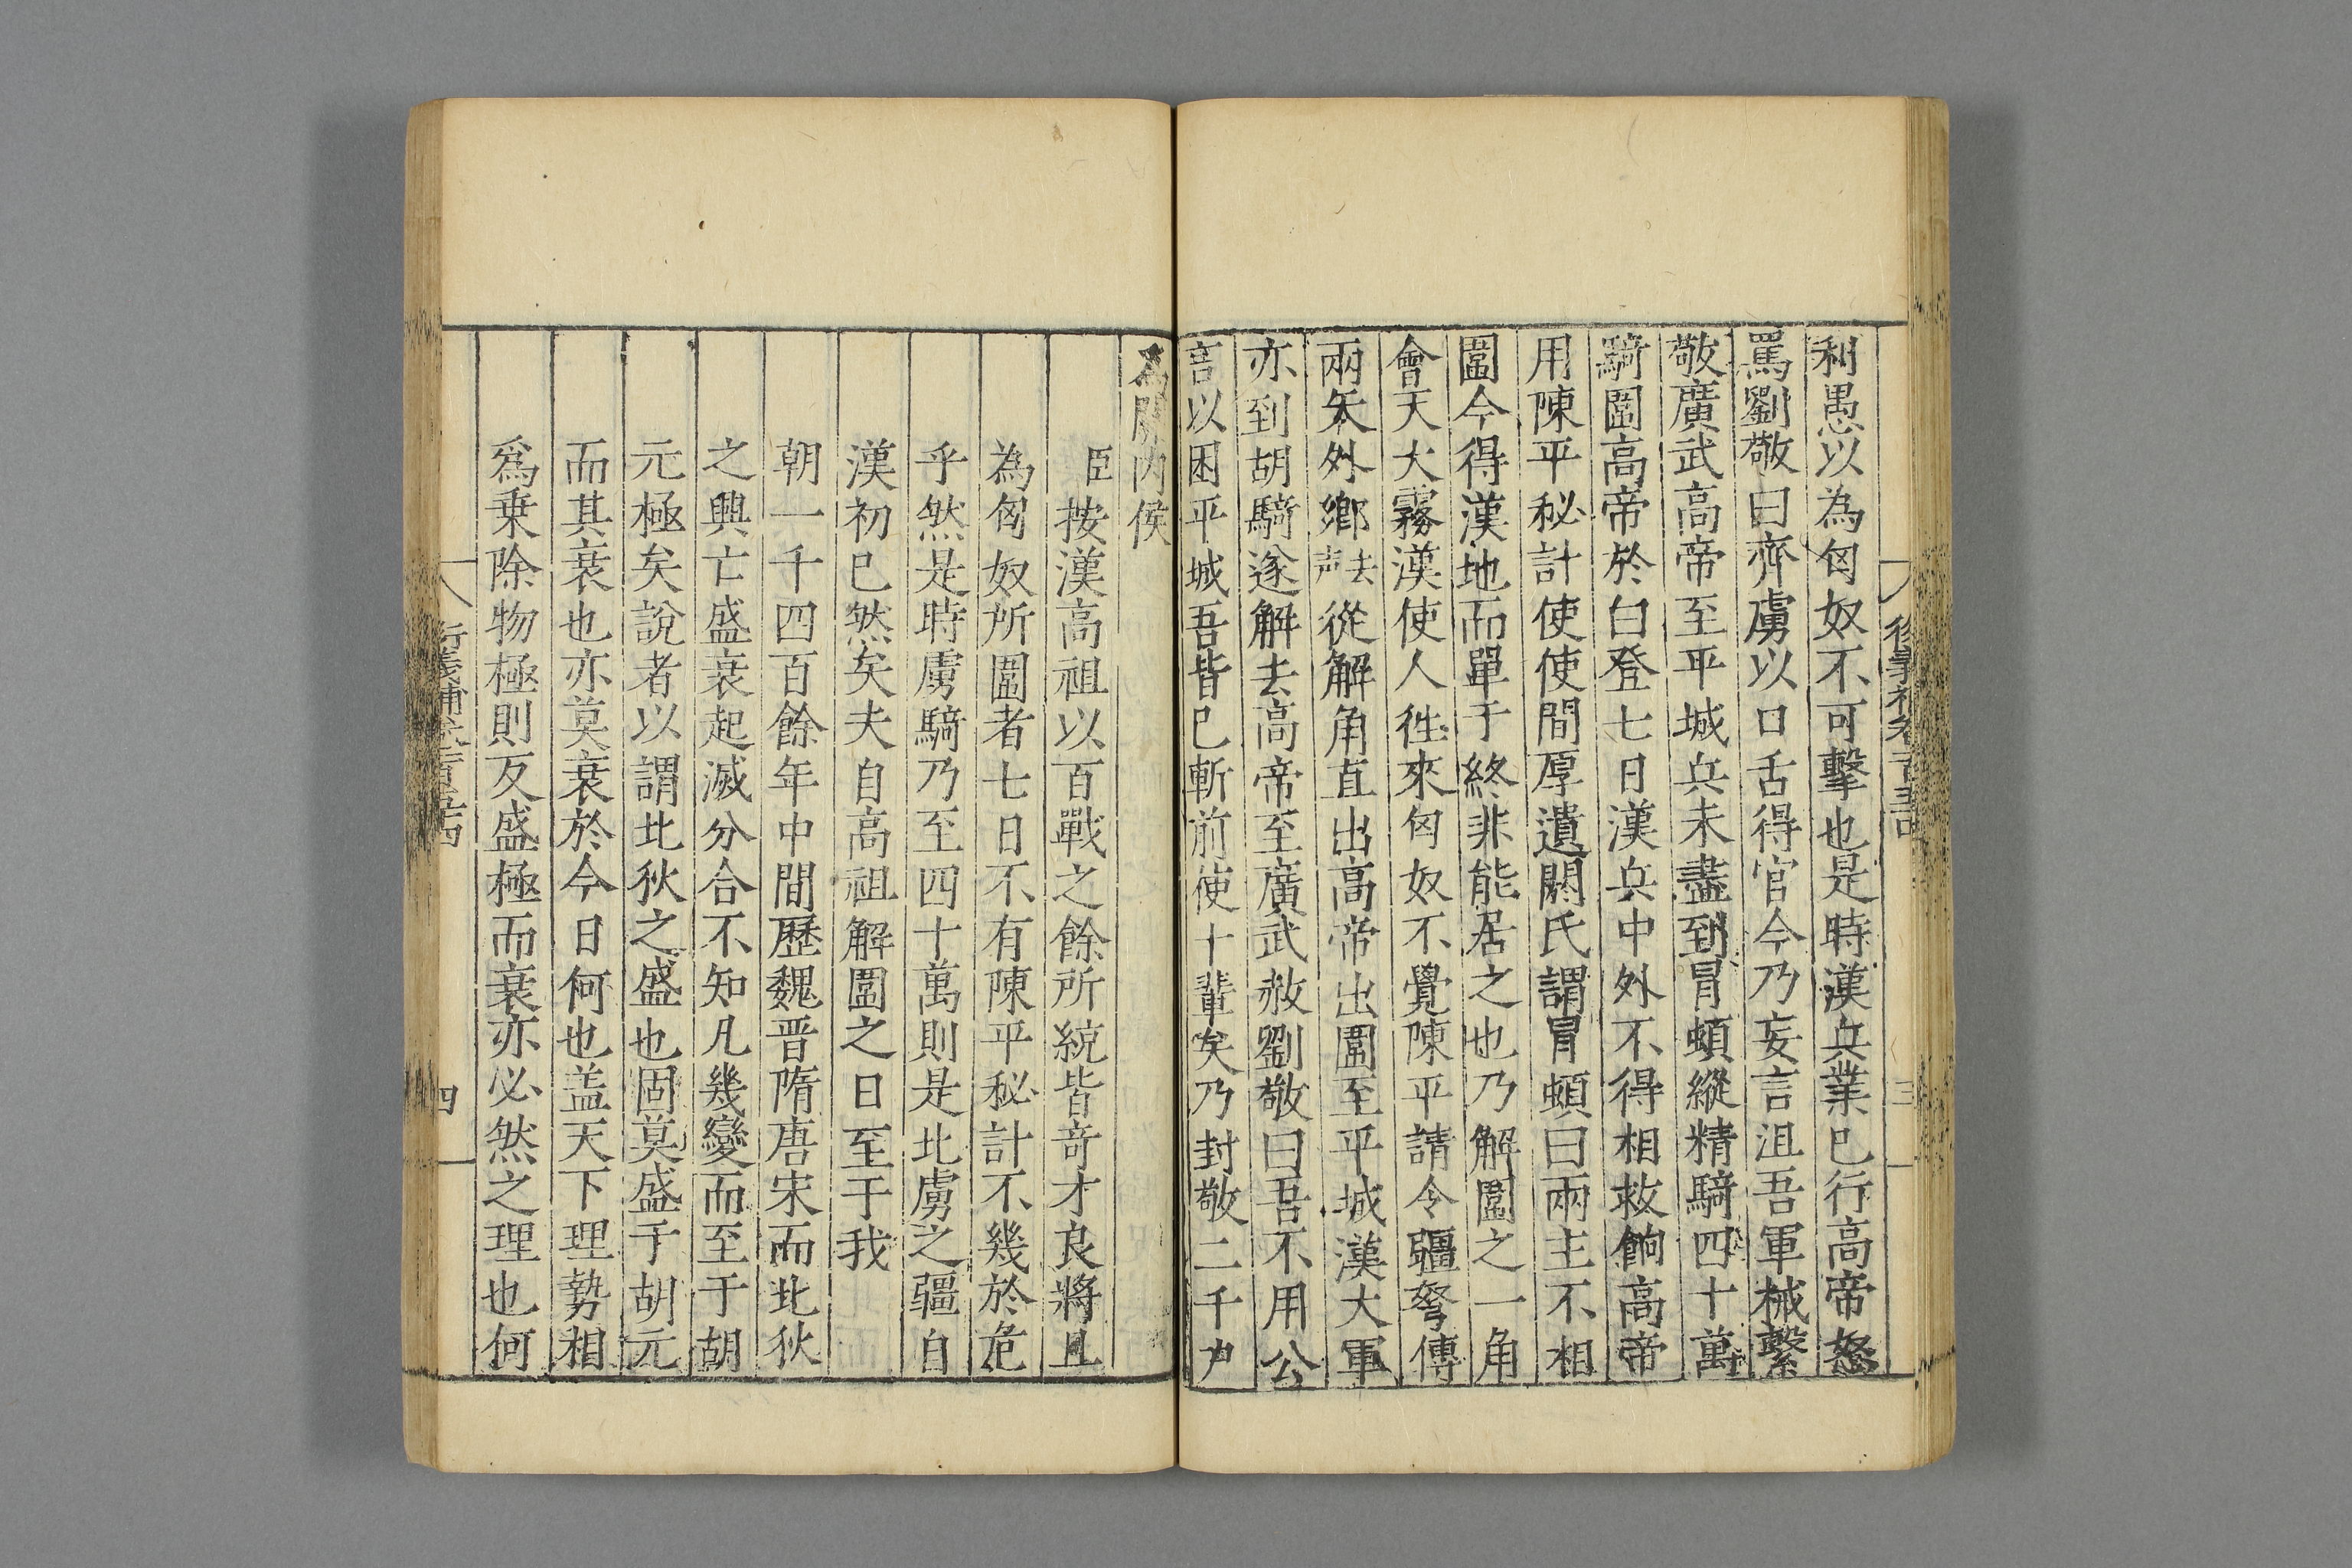 利愚以為匈奴不可擊也是時漢兵業已行高帝怒
罵劉敬曰齊虜以口舌得官今乃妄言沮吾軍械繫
敬廣武高帝至平城兵未盡到冒頓縱精騎四十萬
騎圍高帝於白登七日漢兵中外不得相救餉高帝
用陳平秘計使使間厚遺閼氏謂冒頓曰兩主不相
圍今得漢地而單于終非能居之也乃解圍之一角
會天大霧漢使人徃來匈奴不覺陳平請令彊弩傳
兩矢外鄉去声從解角直出高帝出圍至平城漢大軍
亦到胡騎遂解去高帝至廣武赦劉敬曰吾不用公
言以困平城吾皆已斬前使十輩矣乃封敬二千户
為關內侯
臣按漢高祖以百戰之餘所統皆竒才良將且
為匈奴所圍者七日不有陳平秘計不幾於危
乎然是時虜騎乃至四十萬則是北虜之疆自
漢初已然矣夫自高祖解圍之日至于我
朝一千四百餘年中間歷魏晋隋唐宋而北狄
之興亡盛衰起滅分合不知凡幾變而至于胡
元極矣說者以謂北狄之盛也固莫盛于胡元
而其衰也亦莫衰於今日何也盖天下理勢相
爲乗除物極則反盛極而衰亦必然之理也何
衍義補卷一百五十四
四